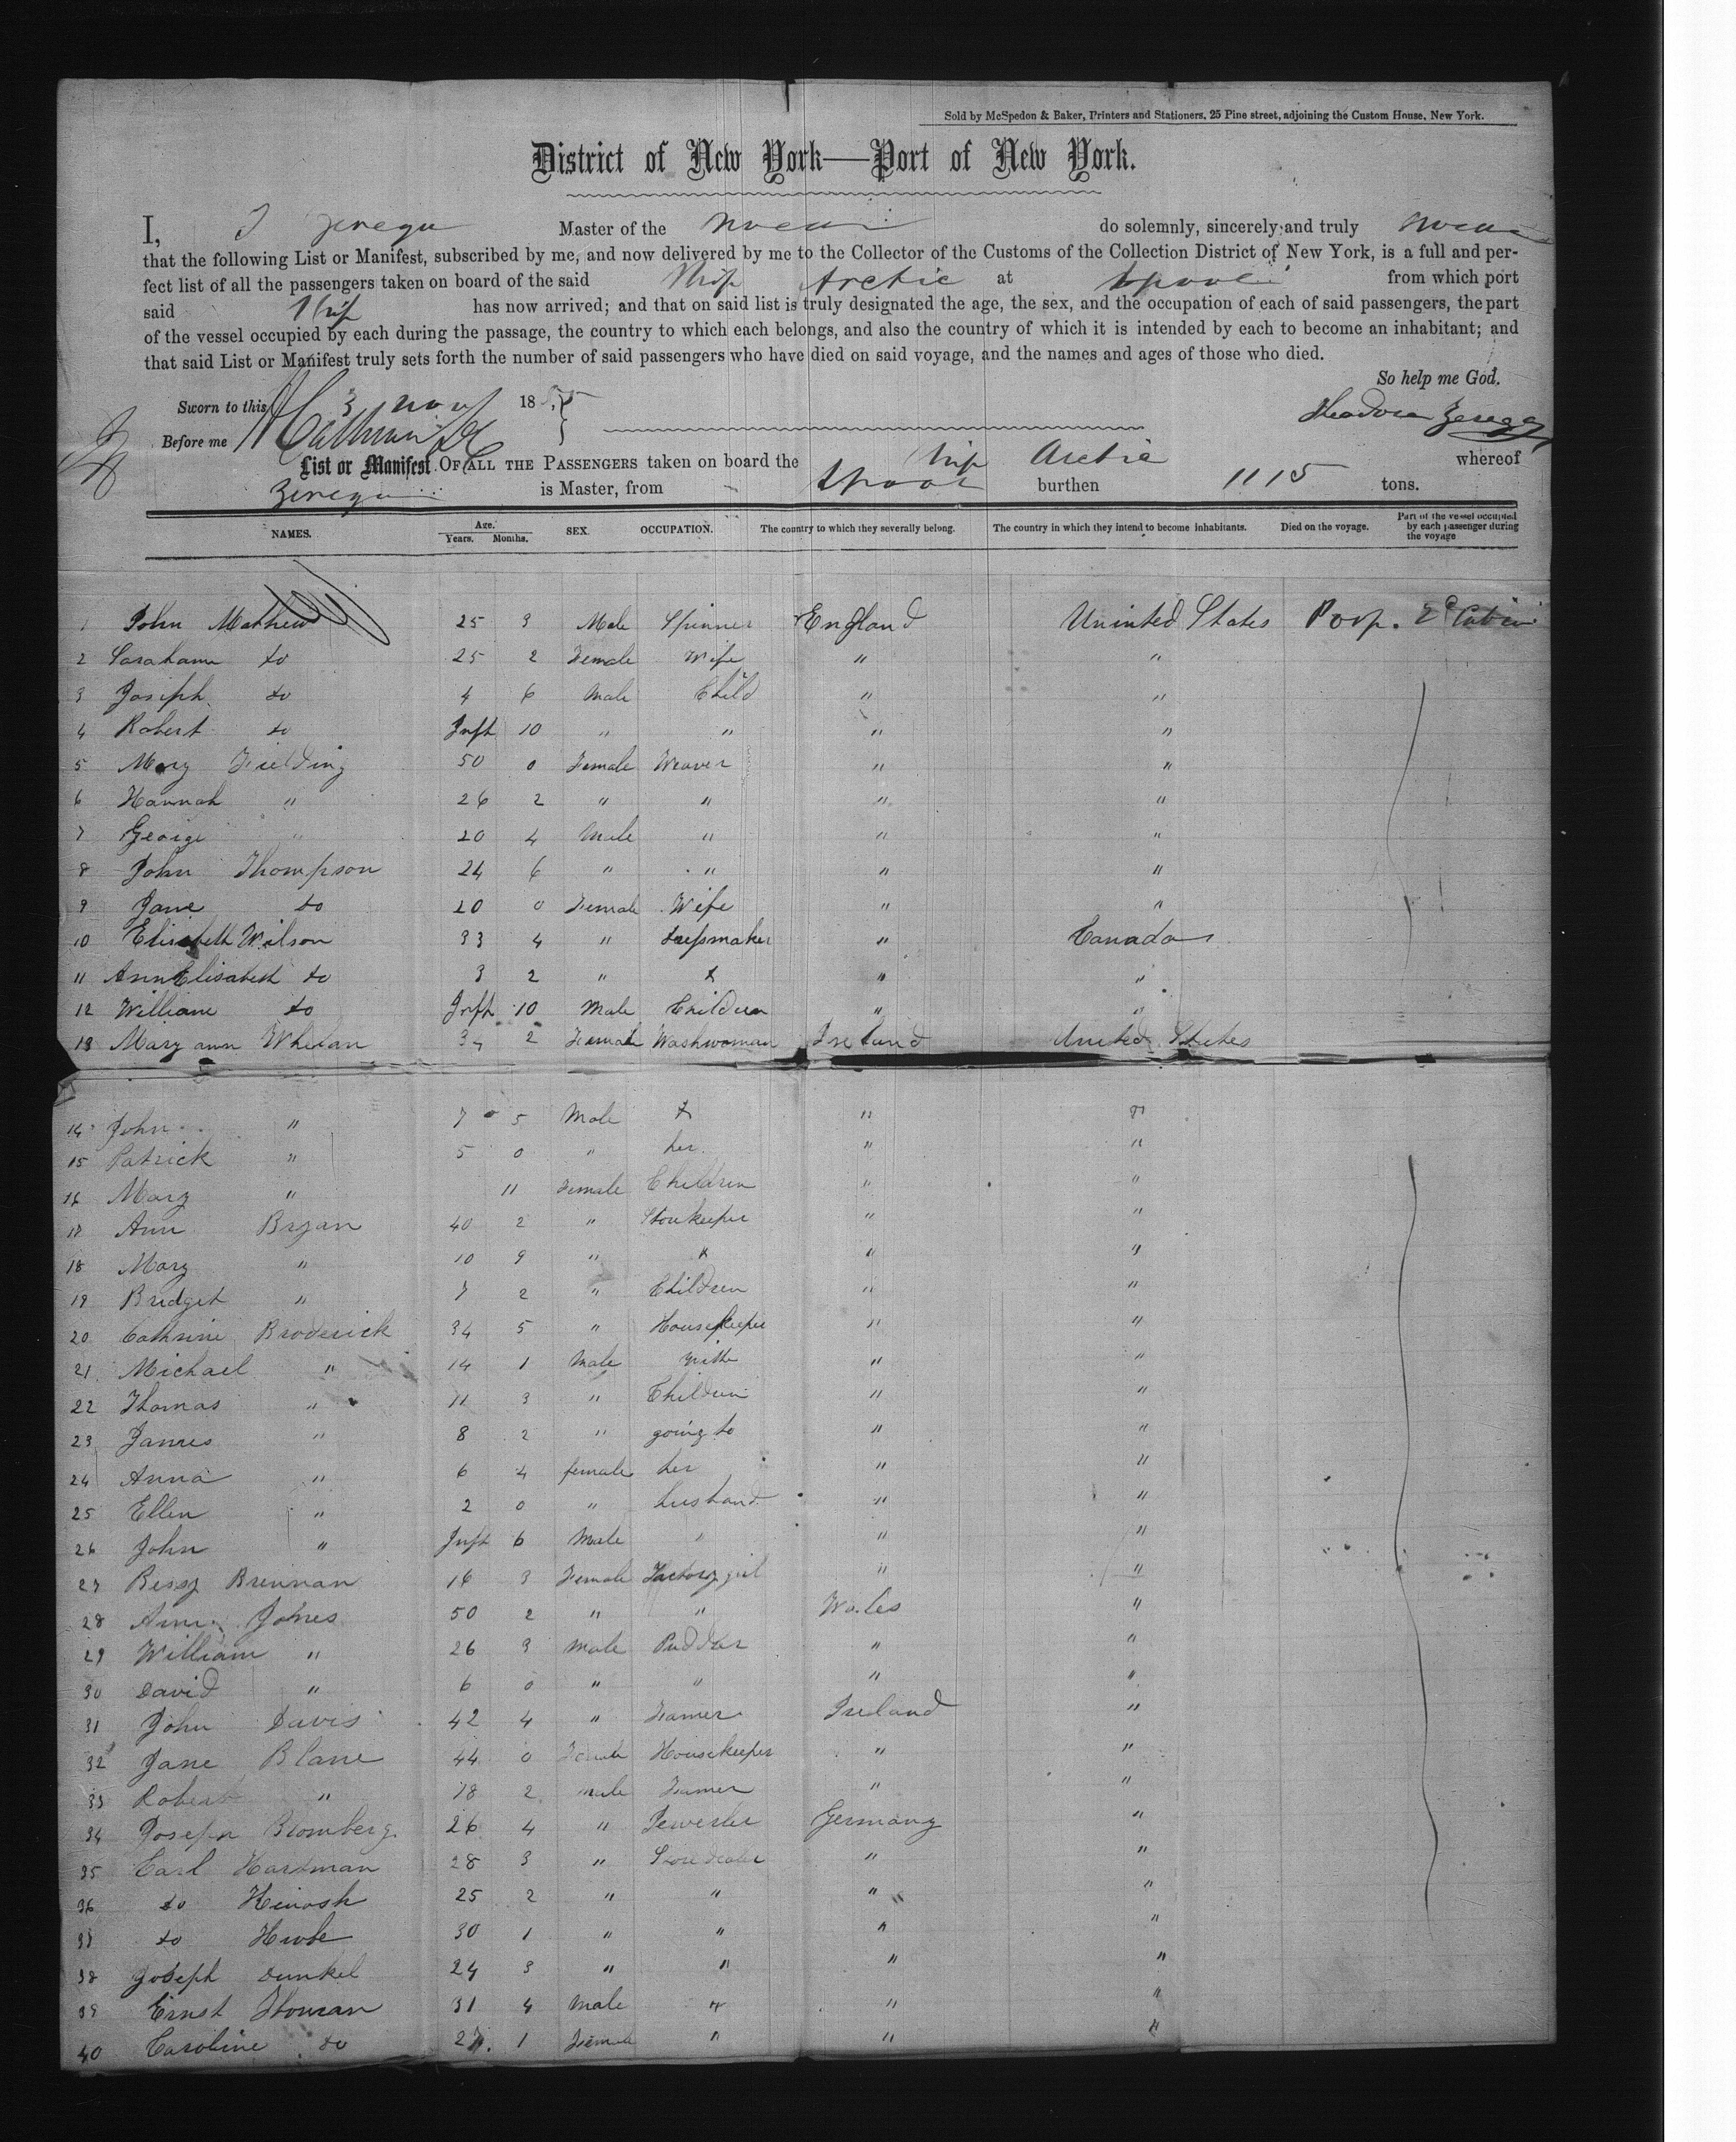 Sold by McSpedon & Baker, Printers and Stationers, 25 Pine street, adjoining the Custom House, New York.
District of New York—Port of New York.
I, Zerega Master of the do solemnly, sincerely and truly
that the following List or Manifest, subscribed by me, and now delivered by me to the Collector of the Customs of the Collection District of New York, is a full and per-
fect list of all the passengers taken on board of the said Ship Arctic at Lpool from which port
said Ship has now arrived; and that on said list is truly designated the age, the sex, and the occupation of each of said passengers, the part
of the vessel occupied by each during the passage, the country to which each belongs, and also the country of which it is intended by each to become an inhabitant; and
that said List or Manifest truly sets forth the number of said passengers who have died on said voyage, and the names and ages of those who died.
So help me God.
Sworn to this 3 Nov 18
Theodore Zerega
Before me
List or Manifest OF ALL THE PASSENGERS taken on board the Ship Arctic whereof
Zerega is Master, from Lpool burthen 1115 tons.
NAMES. Age. Years. Months. SEX. OCCUPATION. The country to which they severally belong. The country in which they intend to become inhabitants. Died on the voyage. Part of the vessel occupied by each passenger during the voyage
1 John Mathew 25 3 Male Spinner England Uninted States Poop. 2d Cabin
2 Sarahann do 25 2 Female Wife " "
3 Joseph do 4 6 Male Child " "
4 Robert do Inft 10 " " " "
5 Mary Fielding 50 0 Female Weaver " "
6 Hannah " 26 2 " " " "
7 George " 20 4 Male " " "
8 John Thompson 24 6 " " " "
9 Jane do 20 0 Female Wife " "
10 Elisabeth Wilson 33 4 " " Canada
11 Ann Elisabeth do 3 2 " " "
12 William do Inft 10 Male Children " "
13 Mary ann Whelan 34 2 Female Washwoman Ireland United States
14 John " 7 5 Male & " "
15 Patrick " 5 0 " her " "
16 Mary " 11 Female Children " "
17 Ann Bryan 40 2 " Storekeeper " "
18 Mary " 10 9 " " "
19 Bridget " 7 2 " Children " "
20 Cathrine Broderick 34 5 " Housekeeper " "
21 Michael " 14 1 Male with " "
22 Thomas " 11 3 " Children " "
23 James " 8 2 " going to " "
24 Anna " 6 4 female her " "
25 Ellen " 2 0 " husband " "
26 John " Inft 6 Male " " "
27 Bessy Brennan 16 3 Female Factory girl " "
28 Ann Jones 50 2 " " Wales "
29 William " 26 3 Male Puddler " "
30 David " 6 0 " " " "
31 John Davis 42 4 " Farmer Ireland "
32 Jane Blane 44 0 Female Housekeeper " "
33 Robert " 18 2 male Farmer " "
34 Joseph Bromberg 26 4 " Germany "
35 Carl Hartman 28 3 " " "
36 do 25 2 " " " "
37 do 30 1 " " " "
38 Joseph Dunkel 24 3 " " " "
39 Ernst Thoman 31 4 Male " " "
40 Caroline do 27 1 Female " " "